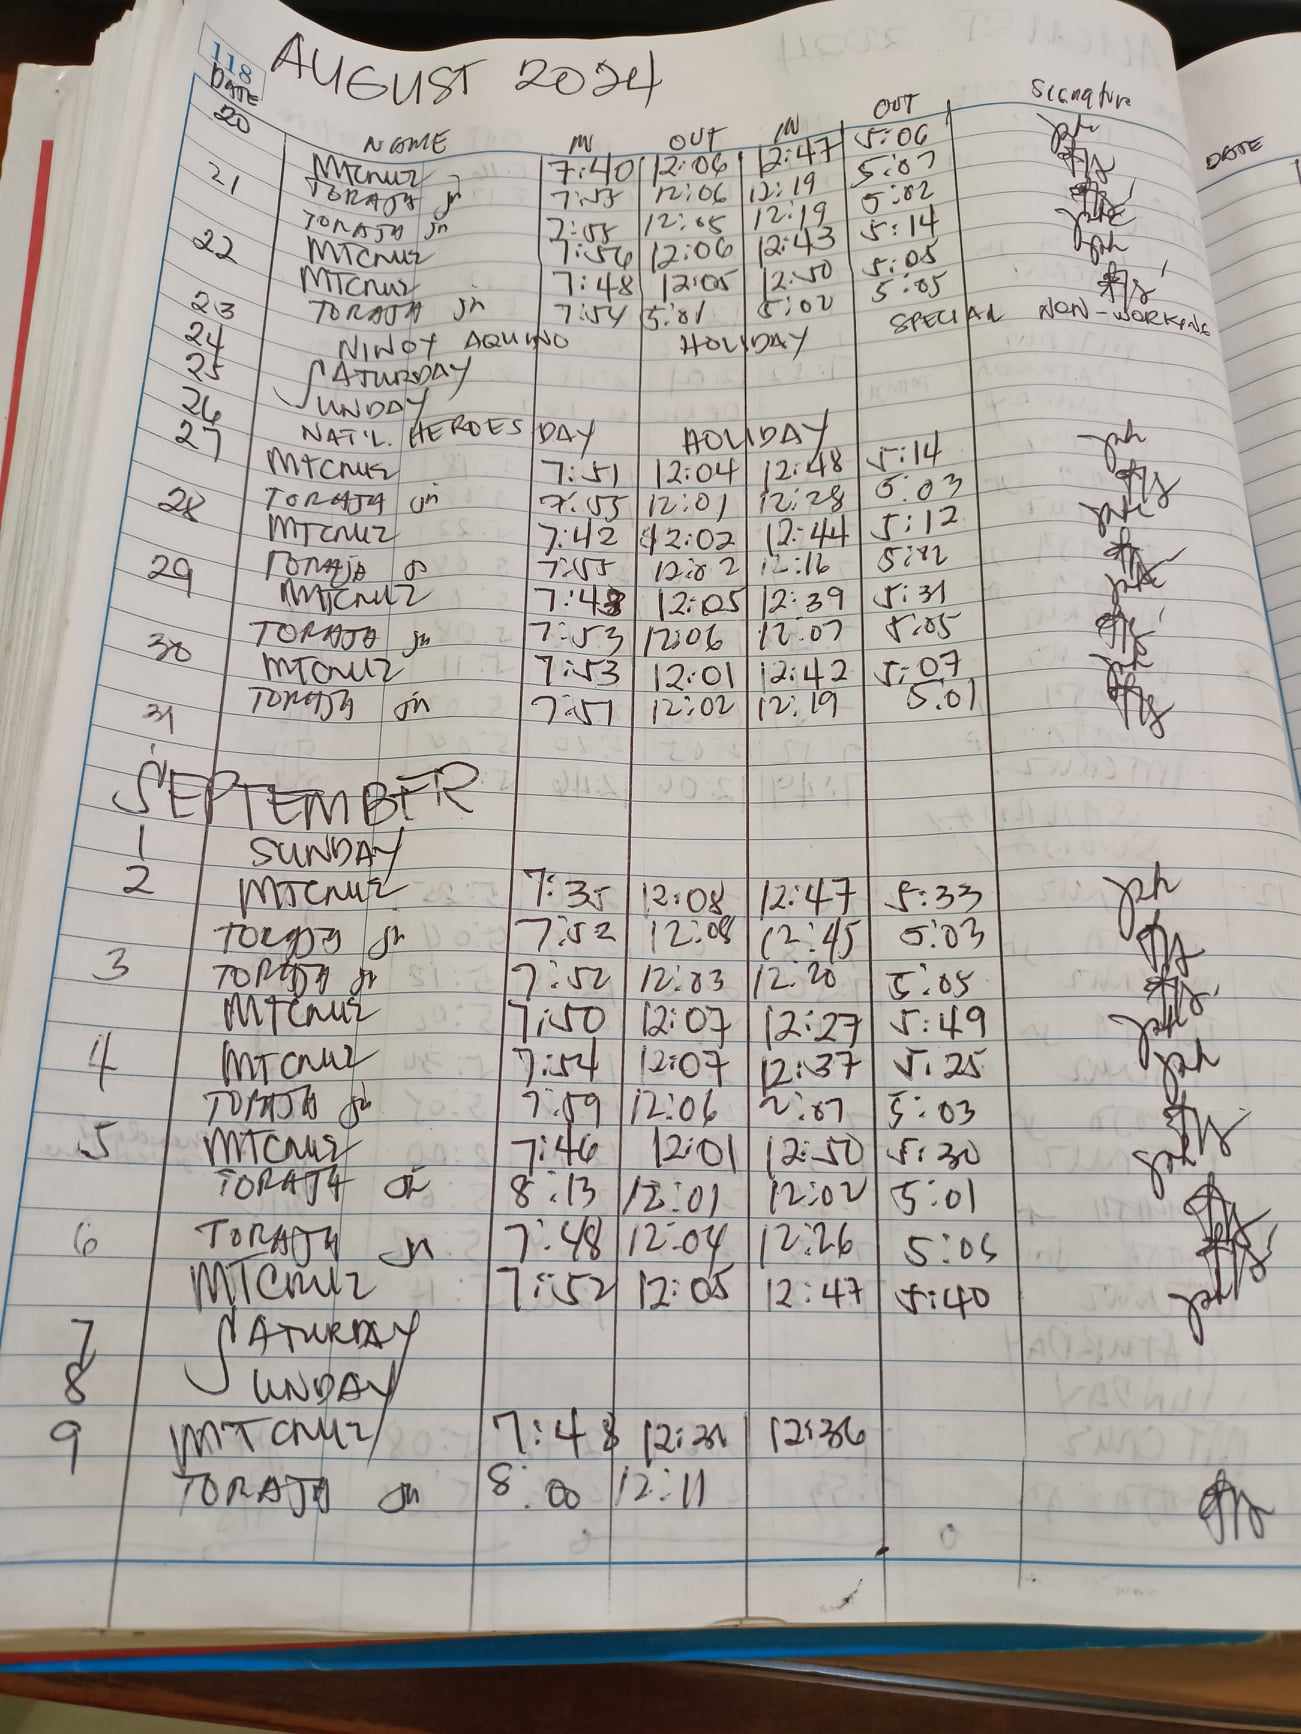 118 AUGUST 2024
DATE NAME IN OUT IN OUT Signature
20 MTCruz 7:40 12:06 12:47 5:06
TORAJA Jr 7:55 12:06 12:19 5:07
21 TORAJA Jr 7:55 12:05 12:19 5:02
MTCruz 7:56 12:06 12:43 5:14
22 MTCruz 7:48 12:05 12:50 5:05
TORAJA Jr 7:54 5:01 5:02 5:05
23 NINOY AQUINO HOLIDAY SPECIAL NON-WORKING
24 SATURDAY
25 SUNDAY
26 NAT'L. HEROES DAY HOLIDAY
27 MTCruz 7:51 12:04 12:48 5:14
TORAJA Jr 7:55 12:01 12:28 5:03
28 MTCruz 7:42 12:02 12:44 5:12
TORAJA Jr 7:55 12:02 12:16 5:02
29 MTCruz 7:48 12:05 12:39 5:31
TORAJA Jr 7:53 12:06 12:07 5:05
30 MTCruz 7:53 12:01 12:42 5:07
TORAJA Jr 7:51 12:02 12:19 5:01
31
SEPTEMBER
1 SUNDAY
2 MTCruz 7:35 12:08 12:47 5:33
TORAJA Jr 7:52 12:08 12:45 5:03
3 TORAJA Jr 7:52 12:03 12:20 5:05
MTCruz 7:50 12:07 12:27 5:49
4 MTCruz 7:54 12:07 12:37 5:25
TORAJA Jr 7:59 12:06 2:07 5:03
5 MTCruz 7:46 12:01 12:50 5:30
TORAJA Jr 8:13 12:01 12:02 5:01
6 TORAJA Jr 7:48 12:04 12:26 5:05
MTCruz 7:52 12:05 12:47 5:40
7 SATURDAY
8 SUNDAY
9 MTCruz 7:48 12:31 12:36
TORAJA Jr 8:00 12:11
DATE